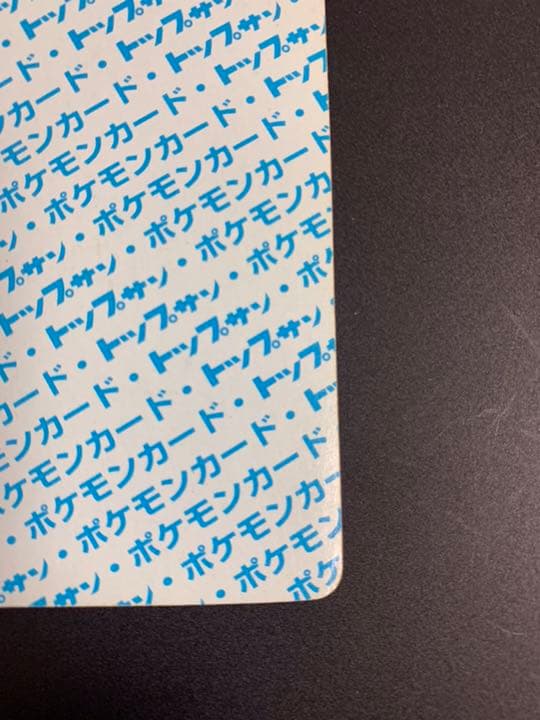 ド・トップサン
カード・トップサン
ンカード・トップサン
モンカード・トップサン
ポケモンカード・トップサン
・ポケモンカード・ト
ン・ポケモンカード
プサン・ポケモンカ
トップサン・ポケモ
・トップサン・ポケ
ド・トップサン・ポ
カード・トップサン
ンカード・トップサン
モンカード・トップサ
ケモンカード・ト
・ポケモンカード
ン・ポケモンカー
サン・ポケモン
ポケ